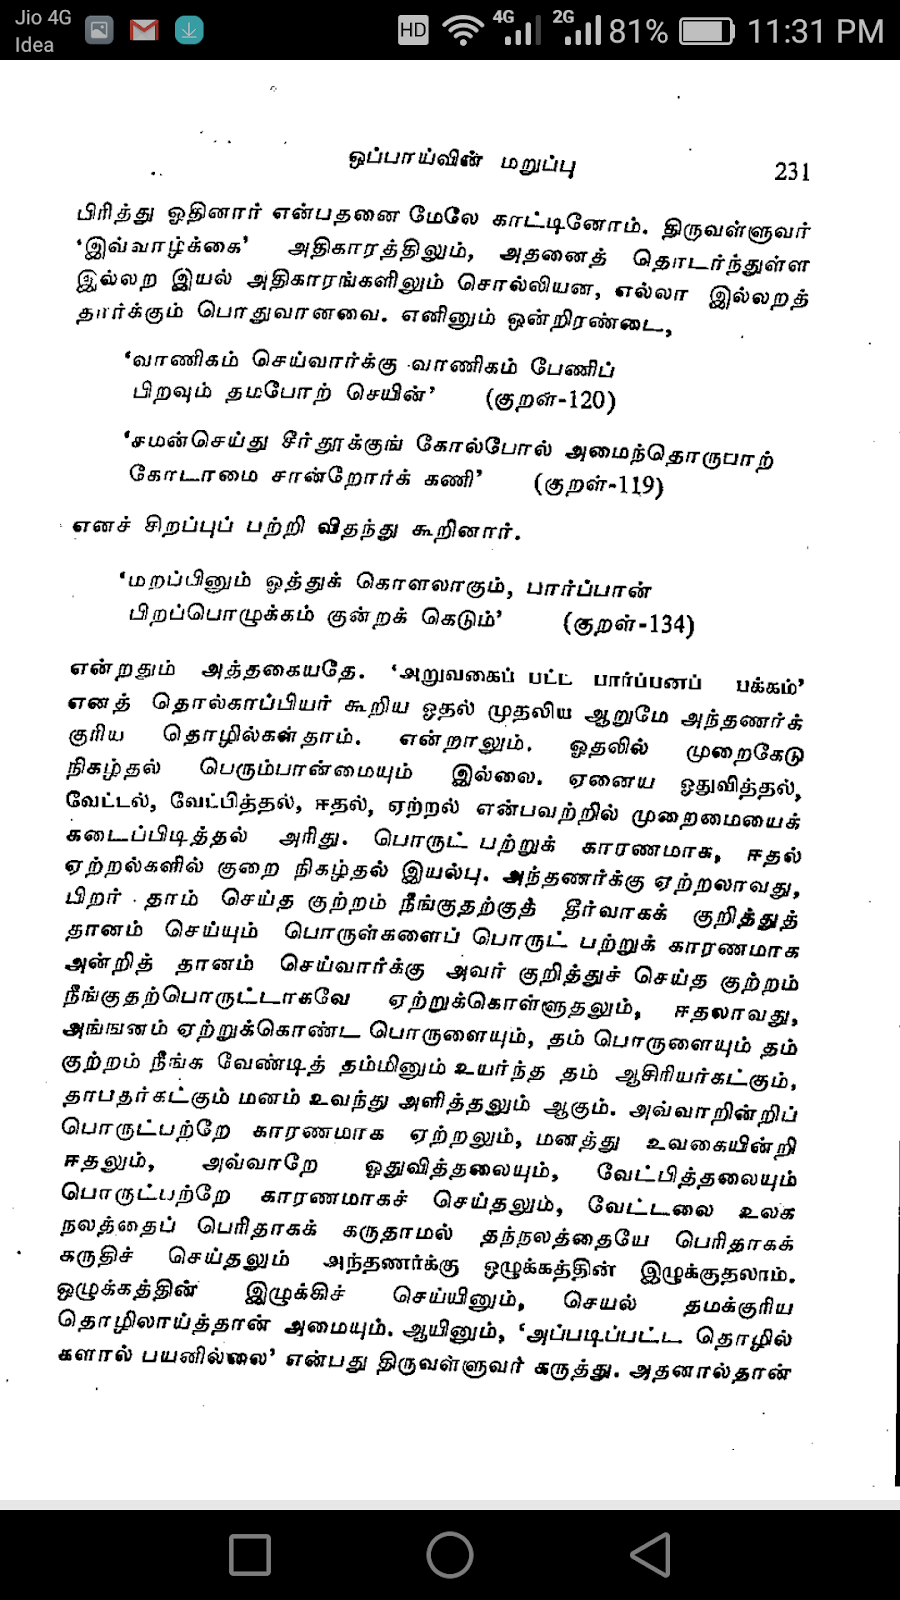 Jio 4G
Idea
HD
4G
2G
81%
11:31 PM
ஒப்பாய்வின் மறுப்பு 231
பிரித்து ஓதினார் என்பதனை மேலே காட்டினோம். திருவள்ளுவர்
‘இவ்வாழ்க்கை’ அதிகாரத்திலும், அதனைத் தொடர்ந்துள்ள
இல்லற இயல் அதிகாரங்களிலும் சொல்லியன, எல்லா இல்லறத்
தார்க்கும் பொதுவானவை. எனினும் ஒன்றிரண்டை,
‘வாணிகம் செய்வார்க்கு வாணிகம் பேணிப்
பிறவும் தமபோற் செயின்’ (குறள்-120)
‘சமன்செய்து சீர்தூக்குங் கோல்போல் அமைந்தொருபாற்
கோடாமை சான்றோர்க் கணி’ (குறள்-119)
எனச் சிறப்புப் பற்றி விதந்து கூறினார்.
‘மறப்பினும் ஓத்துக் கொளலாகும், பார்ப்பான்
பிறப்பொழுக்கம் குன்றக் கெடும்’ (குறள்-134)
என்றதும் அத்தகையதே. ‘அறுவகைப் பட்ட பார்ப்பனப் பக்கம்’
எனத் தொல்காப்பியர் கூறிய ஓதல் முதலிய ஆறுமே அந்தணர்க்
குரிய தொழில்கள்தாம். என்றாலும். ஓதலில் முறைகேடு
நிகழ்தல் பெரும்பான்மையும் இல்லை. ஏனைய ஓதுவித்தல்,
வேட்டல், வேட்பித்தல், ஈதல், ஏற்றல் என்பவற்றில் முறைமையைக்
கடைப்பிடித்தல் அரிது. பொருட் பற்றுக் காரணமாக, ஈதல்
ஏற்றல்களில் குறை நிகழ்தல் இயல்பு. அந்தணர்க்கு ஏற்றலாவது,
பிறர் தாம் செய்த குற்றம் நீங்குதற்குத் தீர்வாகக் குறித்துத்
தானம் செய்யும் பொருள்களைப் பொருட் பற்றுக் காரணமாக
அன்றித் தானம் செய்வார்க்கு அவர் குறித்துச் செய்த குற்றம்
நீங்குதற்பொருட்டாகவே ஏற்றுக்கொள்ளுதலும், ஈதலாவது,
அங்ஙனம் ஏற்றுக்கொண்ட பொருளையும், தம் பொருளையும் தம்
குற்றம் நீங்க வேண்டித் தம்மினும் உயர்ந்த தம் ஆசிரியர்கட்கும்,
தாபதர்கட்கும் மனம் உவந்து அளித்தலும் ஆகும். அவ்வாறின்றிப்
பொருட்பற்றே காரணமாக ஏற்றலும், மனத்து உவகையின்றி
ஈதலும், அவ்வாறே ஓதுவித்தலையும், வேட்பித்தலையும்
பொருட்பற்றே காரணமாகச் செய்தலும், வேட்டலை உலக
நலத்தைப் பெரிதாகக் கருதாமல் தந்நலத்தையே பெரிதாகக்
கருதிச் செய்தலும் அந்தணர்க்கு ஒழுக்கத்தின் இழுக்குதலாம்.
ஒழுக்கத்தின் இழுக்கிச் செய்யினும், செயல் தமக்குரிய
தொழிலாய்த்தான் அமையும். ஆயினும், ‘அப்படிப்பட்ட தொழில்
களால் பயனில்லை’ என்பது திருவள்ளுவர் கருத்து. அதனால்தான்